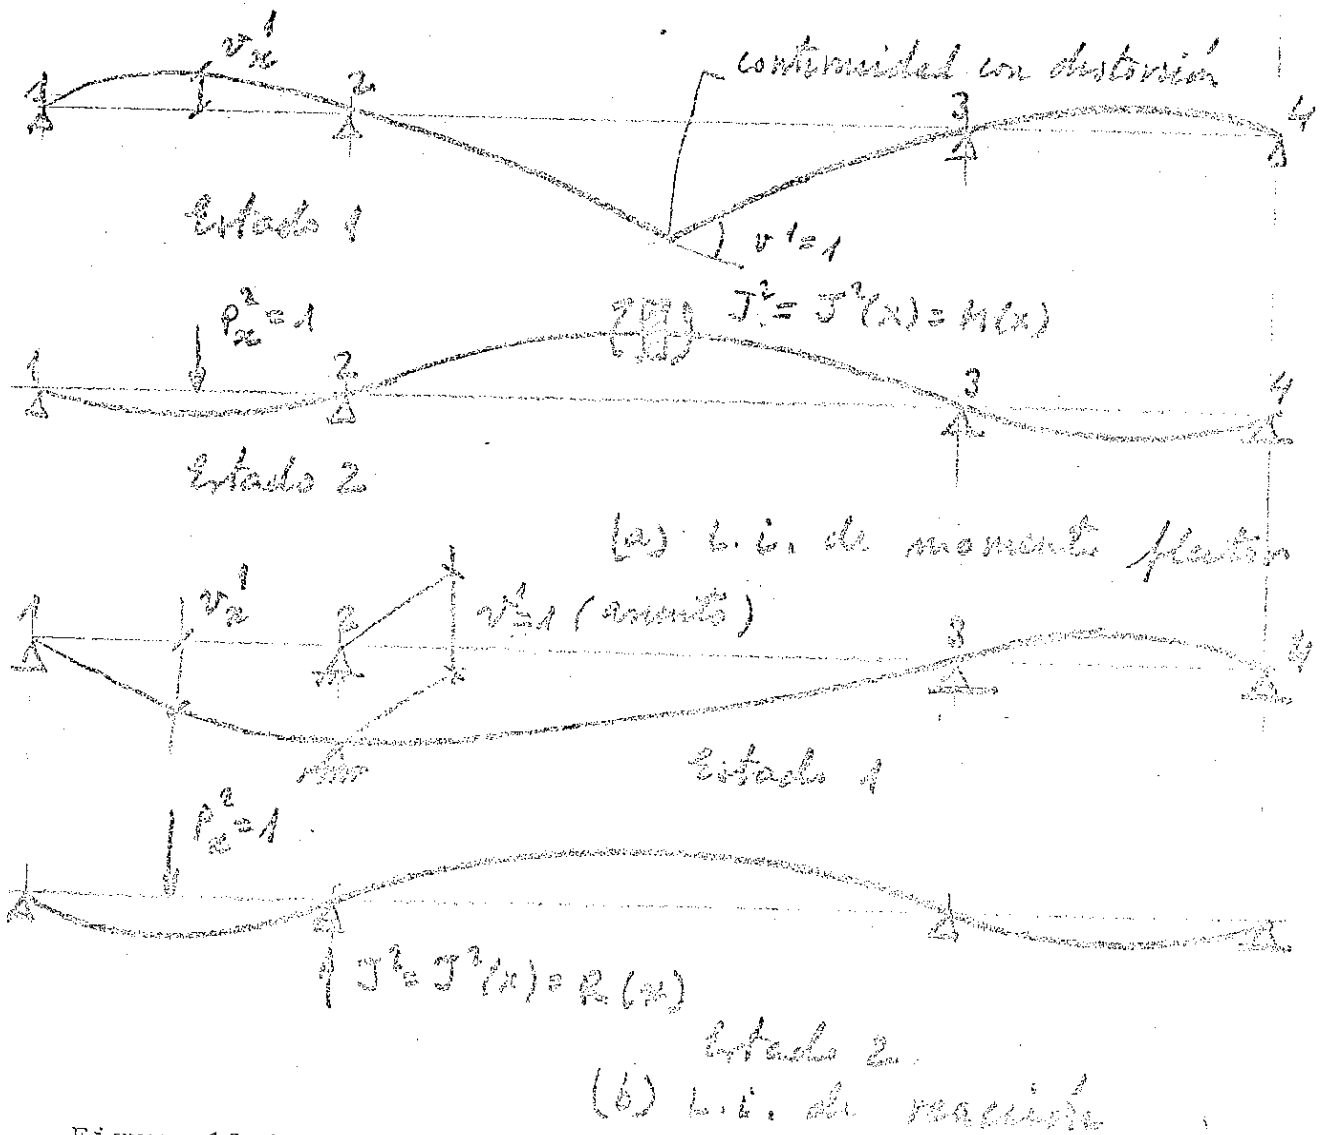 v¹ₓ
continuidad con distorsión
1 2 3 4
Estado 1
v¹=1
P²ₓ=1
J²= J²(x)=M(x)
1 2 3 4
Estado 2
(a) L.i. de momento flector
1 v¹ₓ 2 v¹=1 (asiento) 3 4
Estado 1
P²ₓ=1
J²= J²(x)=R(x)
Estado 2
(b) L.i. de reacción